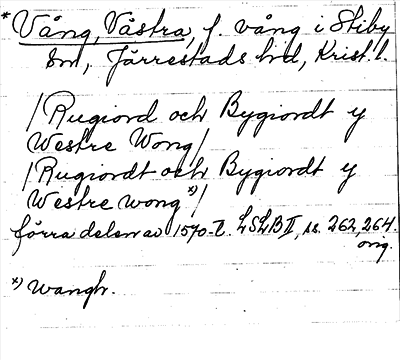 * Vång, Västra, f. vång i Stiby
sn, Järrestads hd, Krist. l.
/Rugiord och Bygiordt y
Westre Wong/
/Rugiordt och Bygiordt y
Westre wong x)/
förra delen av 1570-t. LSLB II, ss. 262, 264.
orig.
x) wangh.